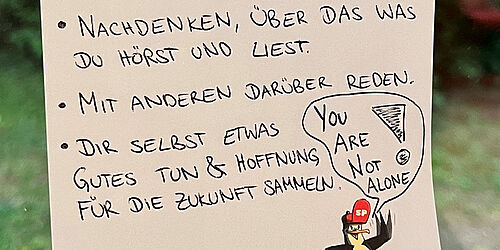 • NACHDENKEN, ÜBER DAS WAS
DU HÖRST UND LIEST.
• MIT ANDEREN DARÜBER REDEN.
• DIR SELBST ETWAS
GUTES TUN & HOFFNUNG
FÜR DIE ZUKUNFT SAMMELN.
YOU
ARE
NOT
ALONE
SP